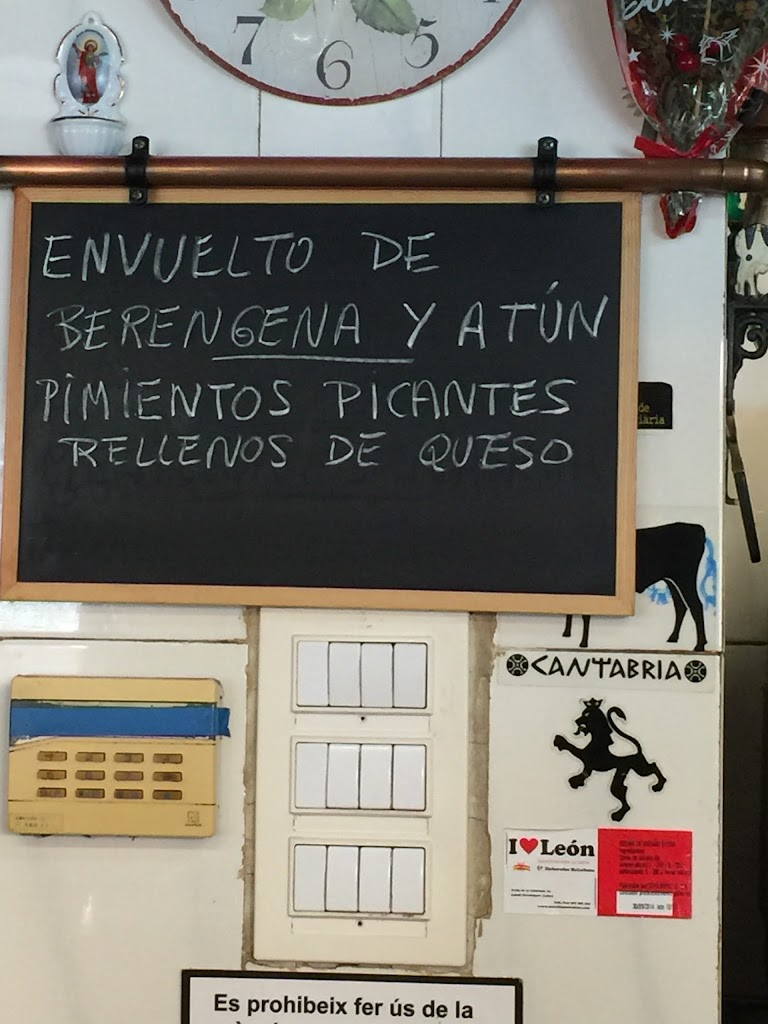 7 6 5
ENVUELTO DE
BERENGENA Y ATÚN
PIMIENTOS PICANTES
RELLENOS DE QUESO
de
CANTABRIA
I ♥ León
Es prohibeix fer ús de la